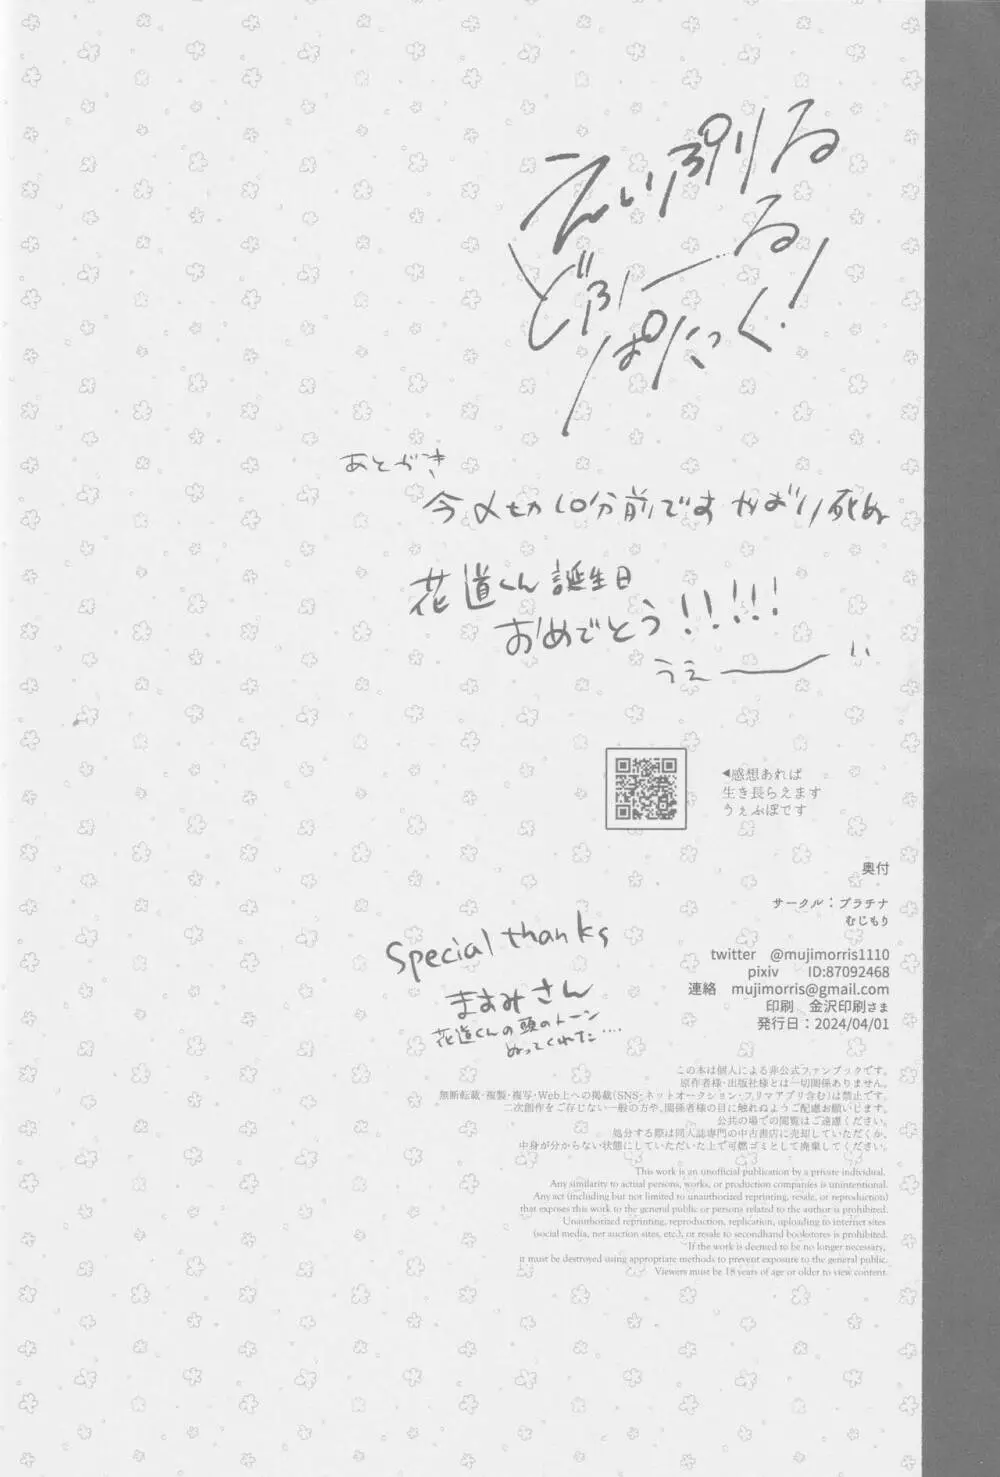 えいぷりる
どふーる
ぱにっく!
あとがき
今〆切10分前です やばい死ぬ
花道くん誕生日
おめでとう!!!!!
うえー
◀感想あれば
生き長らえます
うぇぶぼです
奥付
サークル:プラチナ
むじもり
twitter @mujimorris1110
pixiv ID:87092468
連絡 mujimorris@gmail.com
印刷 金沢印刷さま
発行日:2024/04/01
Special thanks
まあみさん
花道くんの頭のトーン
ぬってくれた....
この本は個人による非公式ファンブックです。
原作者様・出版社様とは一切関係ありません。
無断転載・複製・複写・Web上への掲載(SNS・ネットオークション・フリマアプリ含む)は禁止です。
二次創作をご存じない一般の方や、関係者様の目に触れぬようご配慮お願いします。
公共の場での閲覧はご遠慮ください。
処分する際は同人誌専門の中古書店に売却していただくか、
中身が分からない状態にしていただいた上で可燃ゴミとして廃棄してください。
This work is an unofficial publication by a private individual.
Any similarity to actual persons, works, or production companies is unintentional.
Any act (including but not limited to unauthorized reprinting, resale, or reproduction)
that exposes this work to the general public or persons related to the author is prohibited.
Unauthorized reprinting, reproduction, replication, uploading to internet sites
(social media, net auction sites, etc.), or resale to secondhand bookstores is prohibited.
If the work is deemed to be no longer necessary,
it must be destroyed using appropriate methods to prevent exposure to the general public.
Viewers must be 18 years of age or older to view content.